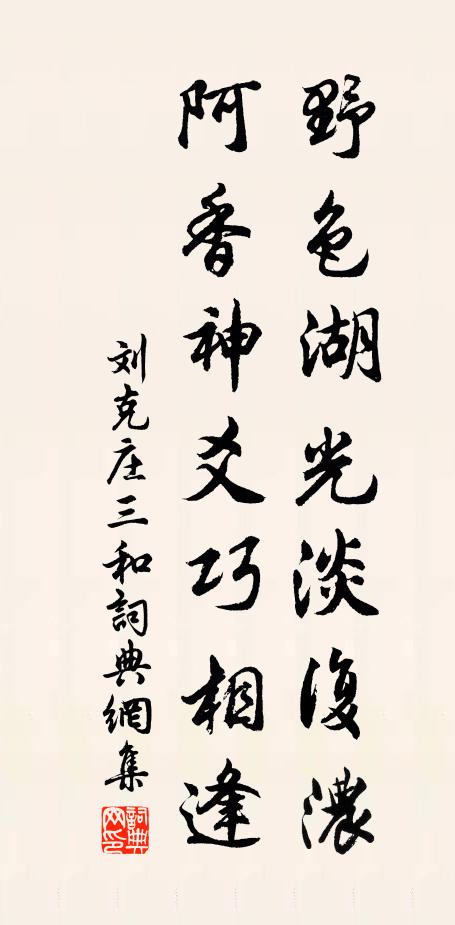 野色湖光淡復濃
阿香神爻巧相逢
刘克庄三和詞典網集
詞典網印